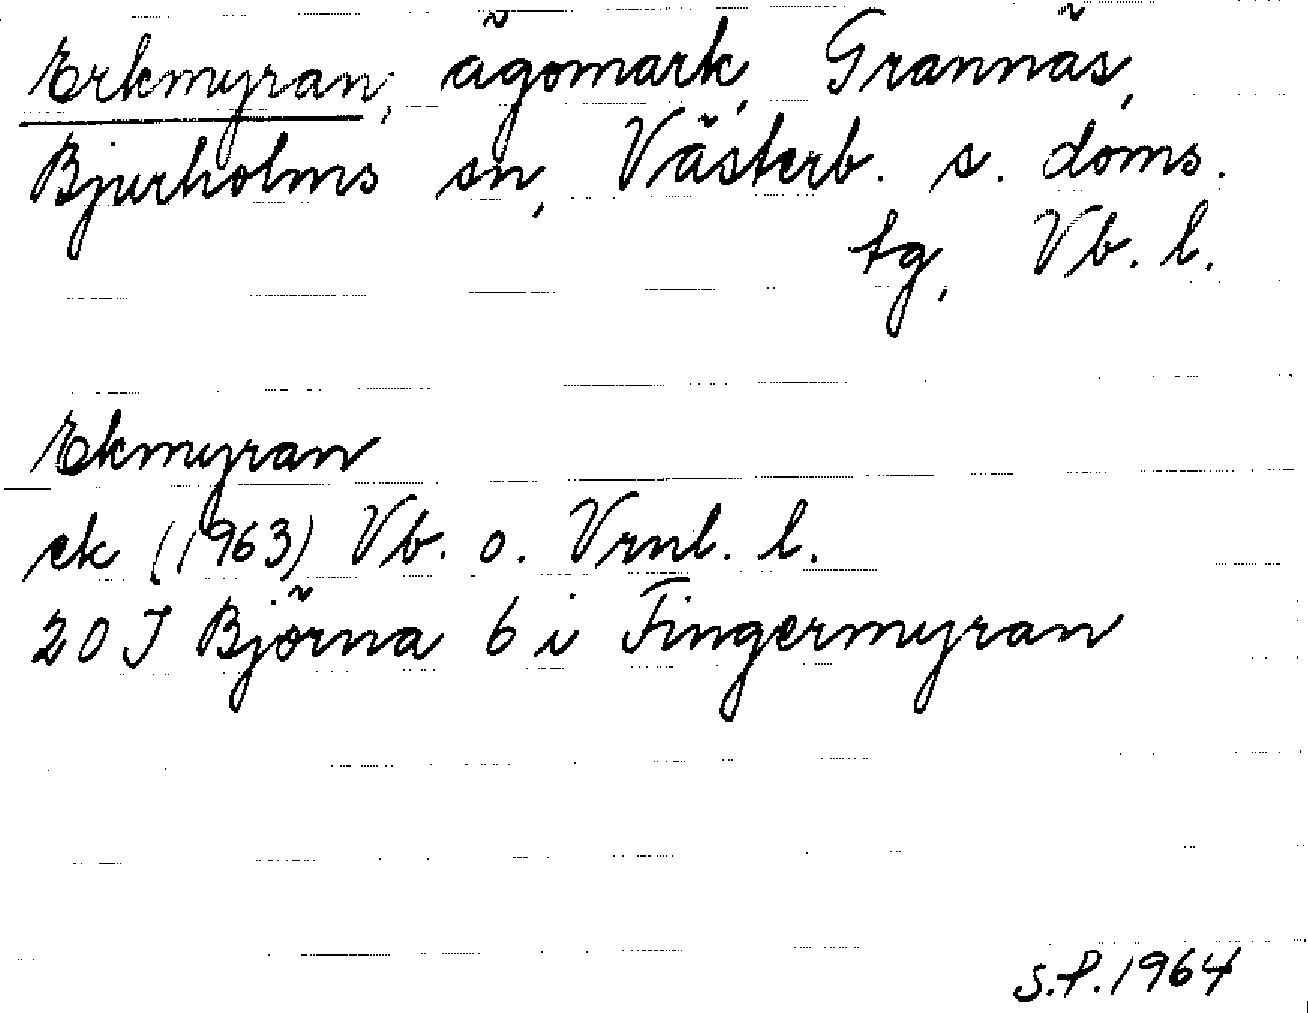 Erkmyran, ägomark, Grannäs,
Bjurholms sn, Västerb. s. doms.
tg, Vb. l.
Ekmyran
ek (1963) Vb. o. Vrnl. l.
20 J Björna 6 i Fingermyran
S.P. 1964